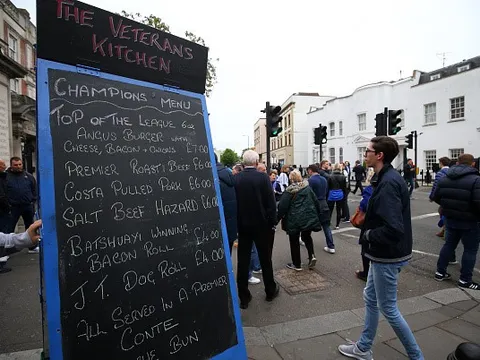 THE VETERANS
KITCHEN
CHAMPIONS' MENU
TOP OF THE LEAGUE 6oz
ANGUS BURGER WITH
CHEESE, BACON + ONIONS £7.00
PREMIER ROAST BEEF £6.00
COSTA PULLED PORK £6.00
SALT BEEF HAZARD £6.00
BATSHUAYI WINNING
BACON ROLL £4.00
J.T. DOG ROLL £4.00
ALL SERVED IN A PREMIER
CONTE
BUN